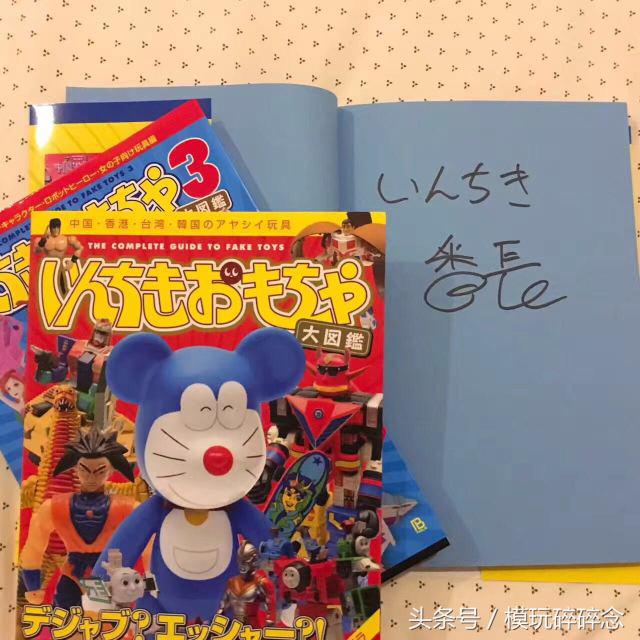 キャラクター・ロボットヒーロー・女の子向け玩具編
GUIDE TO FAKE TOYS 3
もちゃ3
大図鑑
中国・香港・台湾・韓国のアヤシイ玩具
THE COMPLETE GUIDE TO FAKE TOYS
いんちきおもちゃ
大図鑑
デジャブ？エッシャー？！
いんちき
番長
头条号 / 模玩碎碎念